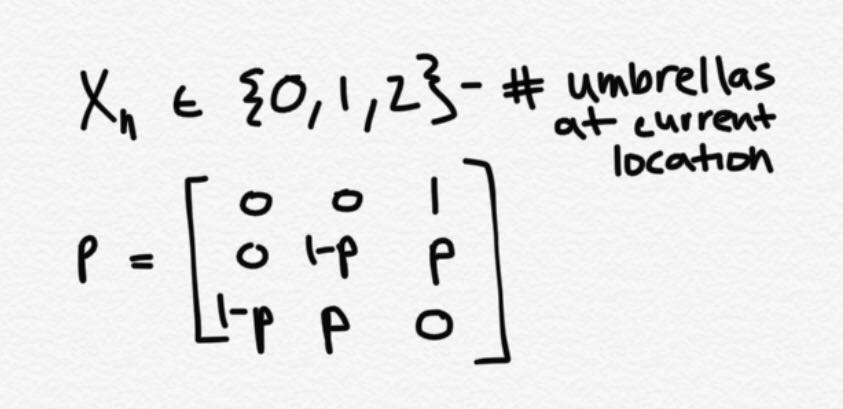 Xₙ ∈ {0, 1, 2} - # umbrellas
at current
location
P = [0 0 1
0 1-p p
1-p p 0]